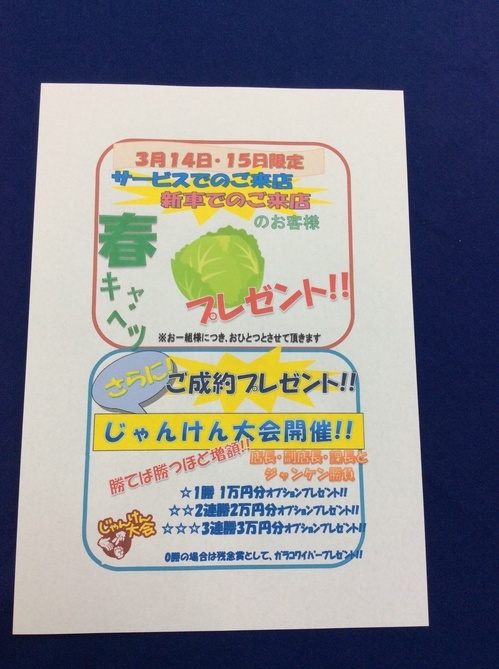 3月14日・15日限定
サービスでのご来店
新車でのご来店
のお客様
春キャベツ
プレゼント!!
※お一組様につき、おひとつとさせて頂きます
さらに!
ご成約プレゼント!!
じゃんけん大会開催!!
勝てば勝つほど増額!!
店長・副店長・課長と
ジャンケン勝負
☆1勝 1万円分オプションプレゼント!!
☆☆2連勝2万円分オプションプレゼント!!
☆☆☆3連勝3万円分オプションプレゼント!!
じゃんけん
大会
0勝の場合は残念賞として、ガラコワイパープレゼント!!